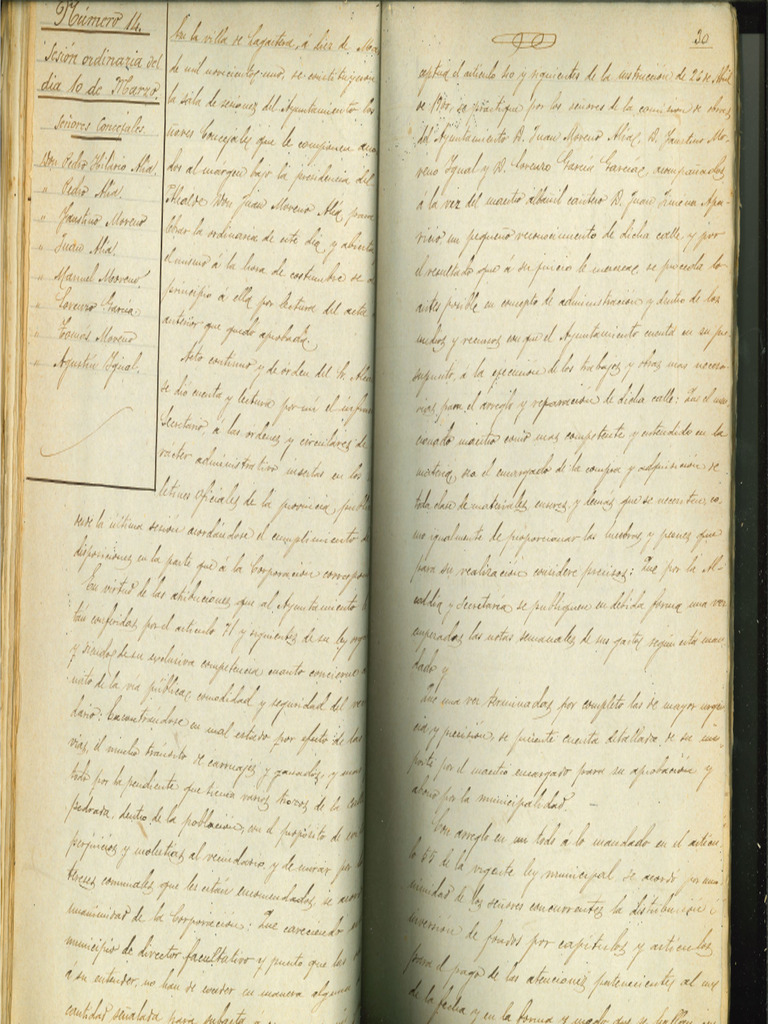 Número 14.
Sesión ordinaria del
día 10 de Marzo.
Señores Concejales
Don Pedro Hilario Alía.
" Pedro Alía.
" Faustino Moreno
" Juan Alía.
" Manuel Moreno.
" Lorenzo García
" Tomás Moreno
" Agustín Igual.
En la villa de Lagartera, á diez de
de mil novecientos uno, se constituyeron
la sala de sesiones del Ayuntamiento los
ñores Concejales que le componen
dos al margen bajo la presidencia del
Alcalde Don Juan Moreno Alía, para
lebrar la ordinaria de este dia, y abierta
á la hora de costumbre se
principio á ella por lectura del acta
anterior que quedó aprobada.
Acto continuo y de orden del Sr.
se dió cuenta y lectura por mí el
Secretario, a las ordenes y circulares de
racter administrativo insertas en los
letines Oficiales de la provincia,
desde la última sesión acordándose el cumplimiento
disposiciones en la parte que á la Corporación
En virtud de las atribuciones, que al Ayuntamiento
tán conferidas por el artículo 71 y siguientes de su ley
y siendo de su exclusiva competencia cuanto
nato de la via pública, comodidad y seguridad del
dario: Encontrándose en mal estado por efecto de las
vias, el mucho tránsito de carruajes y ganados, y
todo por la pendiente que tienen varios trozos de la
pedrada, dentro de la población, con el propósito de
perjuicios y molestias al vecindario, y de mirar por
tereses comunales que les están encomendados, se
unanimidad de la Corporación: Que careciendo
municipio de director facultativo y puesto que las
á su entender, no han de exceder en manera alguna
cantidad señalada para subasta
30
ceptua el artículo 40 y siguientes de la instrucción de 26 de Abril
de 1900, se practique por los señores de la comisión de obras
del Ayuntamiento D. Juan Moreno Alía, D. Faustino Mo-
reno Igual y D. Lorenzo García García, acompañados
á la vez del maestro albañil cantero D. Juan
un pequeño reconocimiento de dicha calle, y por
el resultado que á su juicio le merezca, se proceda lo
antes posible en concepto de administración y dentro de los
medios y recursos con que el Ayuntamiento cuenta en su pre-
supuesto, á la ejecución de los trabajos y obras mas necesa-
rias para el arreglo y reparación de dicha calle: Que el men-
cionado maestro como mas competente y entendido en la
materia, sea el encargado de la compra y adquisición de
toda clase de materiales enseres y demas que se necesiten, co-
mo igualmente de proporcionar los hombres y peones que
para su realización considere precisos: Que por la Al-
caldía y Secretaría se publiquen en debida forma una vez
empezadas las notas semanales de sus gastos según está man-
dado y
Que una vez terminadas por completo las de mayor urgen-
cia y precisión, se presente cuenta detallada de su im-
porte por el maestro encargado para su aprobación y
abono por la municipalidad. —
Con arreglo en un todo á lo mandado en el articu-
lo 155 de la vigente ley municipal se acordó por una-
nimidad de los señores concurrentes la distribución é
inversion de fondos por capítulos y artículos
para el pago de las atenciones pertenecientes al
de la fecha y en la forma y modo que se